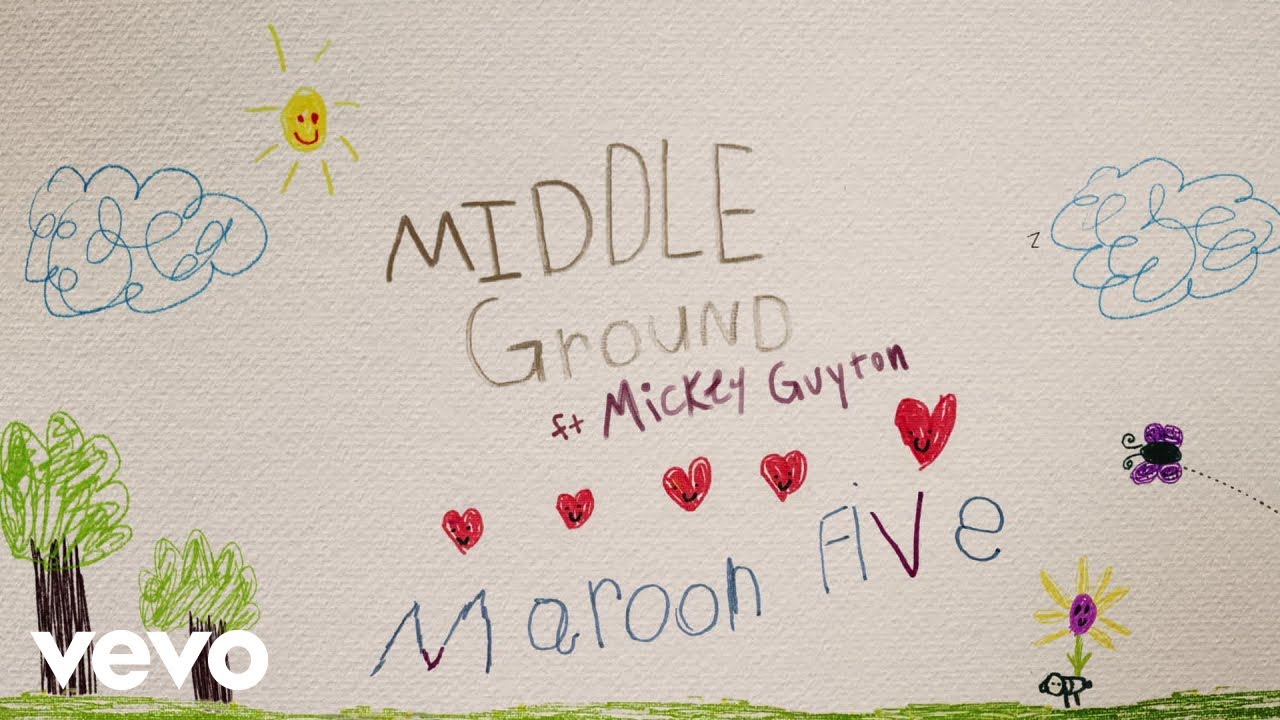 MIDDLE
GrOUND
ft Mickey Guyton
Maroon Five
z
vevo